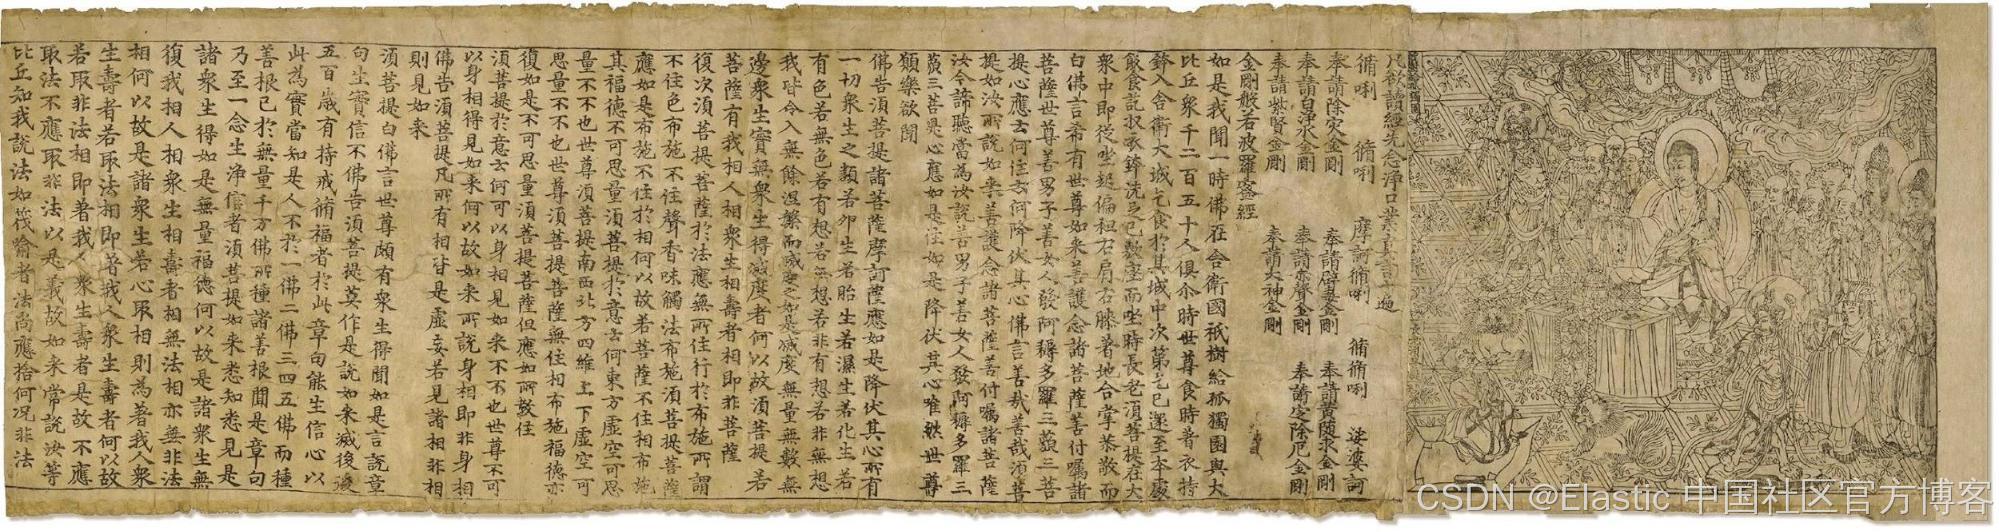 凡欲讀經先念淨口業真言一遍
脩唎 脩唎 摩訶脩唎 脩脩唎 娑婆訶
奉請除災金剛 奉請辟毒金剛 奉請黃隨求金剛
奉請白淨水金剛 奉請赤聲金剛 奉請定除厄金剛
奉請紫賢金剛 奉請大神金剛
金剛般若波羅蜜經
如是我聞一時佛在舍衛國祇樹給孤獨園與大
比丘眾千二百五十人俱尒時世尊食時著衣持
鉢入舍衛大城乞食於其城中次第乞已還至本處
飯食訖收衣鉢洗足已敷座而坐時長老須菩提在大
眾中即從坐起偏袒右肩右膝著地合掌恭敬而
白佛言希有世尊如來善護念諸菩薩善付囑諸
菩薩世尊善男子善女人發阿耨多羅三藐三菩
提心應云何住云何降伏其心佛言善哉善哉須菩
提如汝所說如來善護念諸菩薩善付囑諸菩薩
汝今諦聽當為汝說善男子善女人發阿耨多羅三
藐三菩提心應如是住如是降伏其心唯然世尊
願樂欲聞
佛告須菩提諸菩薩摩訶薩應如是降伏其心所有
一切眾生之類若卵生若胎生若濕生若化生若
有色若無色若有想若無想若非有想若非無想
我皆令入無餘涅槃而滅度之如是滅度無量無數無
邊眾生實無眾生得滅度者何以故須菩提若
菩薩有我相人相眾生相壽者相即非菩薩
復次須菩提菩薩於法應無所住行於布施所謂
不住色布施不住聲香味觸法布施須菩提菩薩
應如是布施不住於相何以故若菩薩不住相布施
其福德不可思量須菩提於意云何東方虛空可思
量不不也世尊須菩提南西北方四維上下虛空可
思量不不也世尊須菩提菩薩無住相布施福德亦
復如是不可思量須菩提菩薩但應如所教住
須菩提於意云何可以身相見如來不不也世尊不可
以身相得見如來何以故如來所說身相即非身相
佛告須菩提凡所有相皆是虛妄若見諸相非相
則見如來
須菩提白佛言世尊頗有眾生得聞如是言說章
句生實信不佛告須菩提莫作是說如來滅後後
五百歲有持戒脩福者於此章句能生信心以
此為實當知是人不於一佛二佛三四五佛而種
善根已於無量千万佛所種諸善根聞是章句
乃至一念生淨信者須菩提如來悉知悉見是
諸眾生得如是無量福德何以故是諸眾生無
復我相人相眾生相壽者相無法相亦無非法
相何以故是諸眾生若心取相則為著我人眾
生壽者若取法相即著我人眾生壽者何以故
若取非法相即著我人眾生壽者是故不應
取法不應取非法以是義故如來常說汝等
比丘知我說法如筏喻者法尚應捨何況非法
CSDN @Elastic 中国社区官方博客